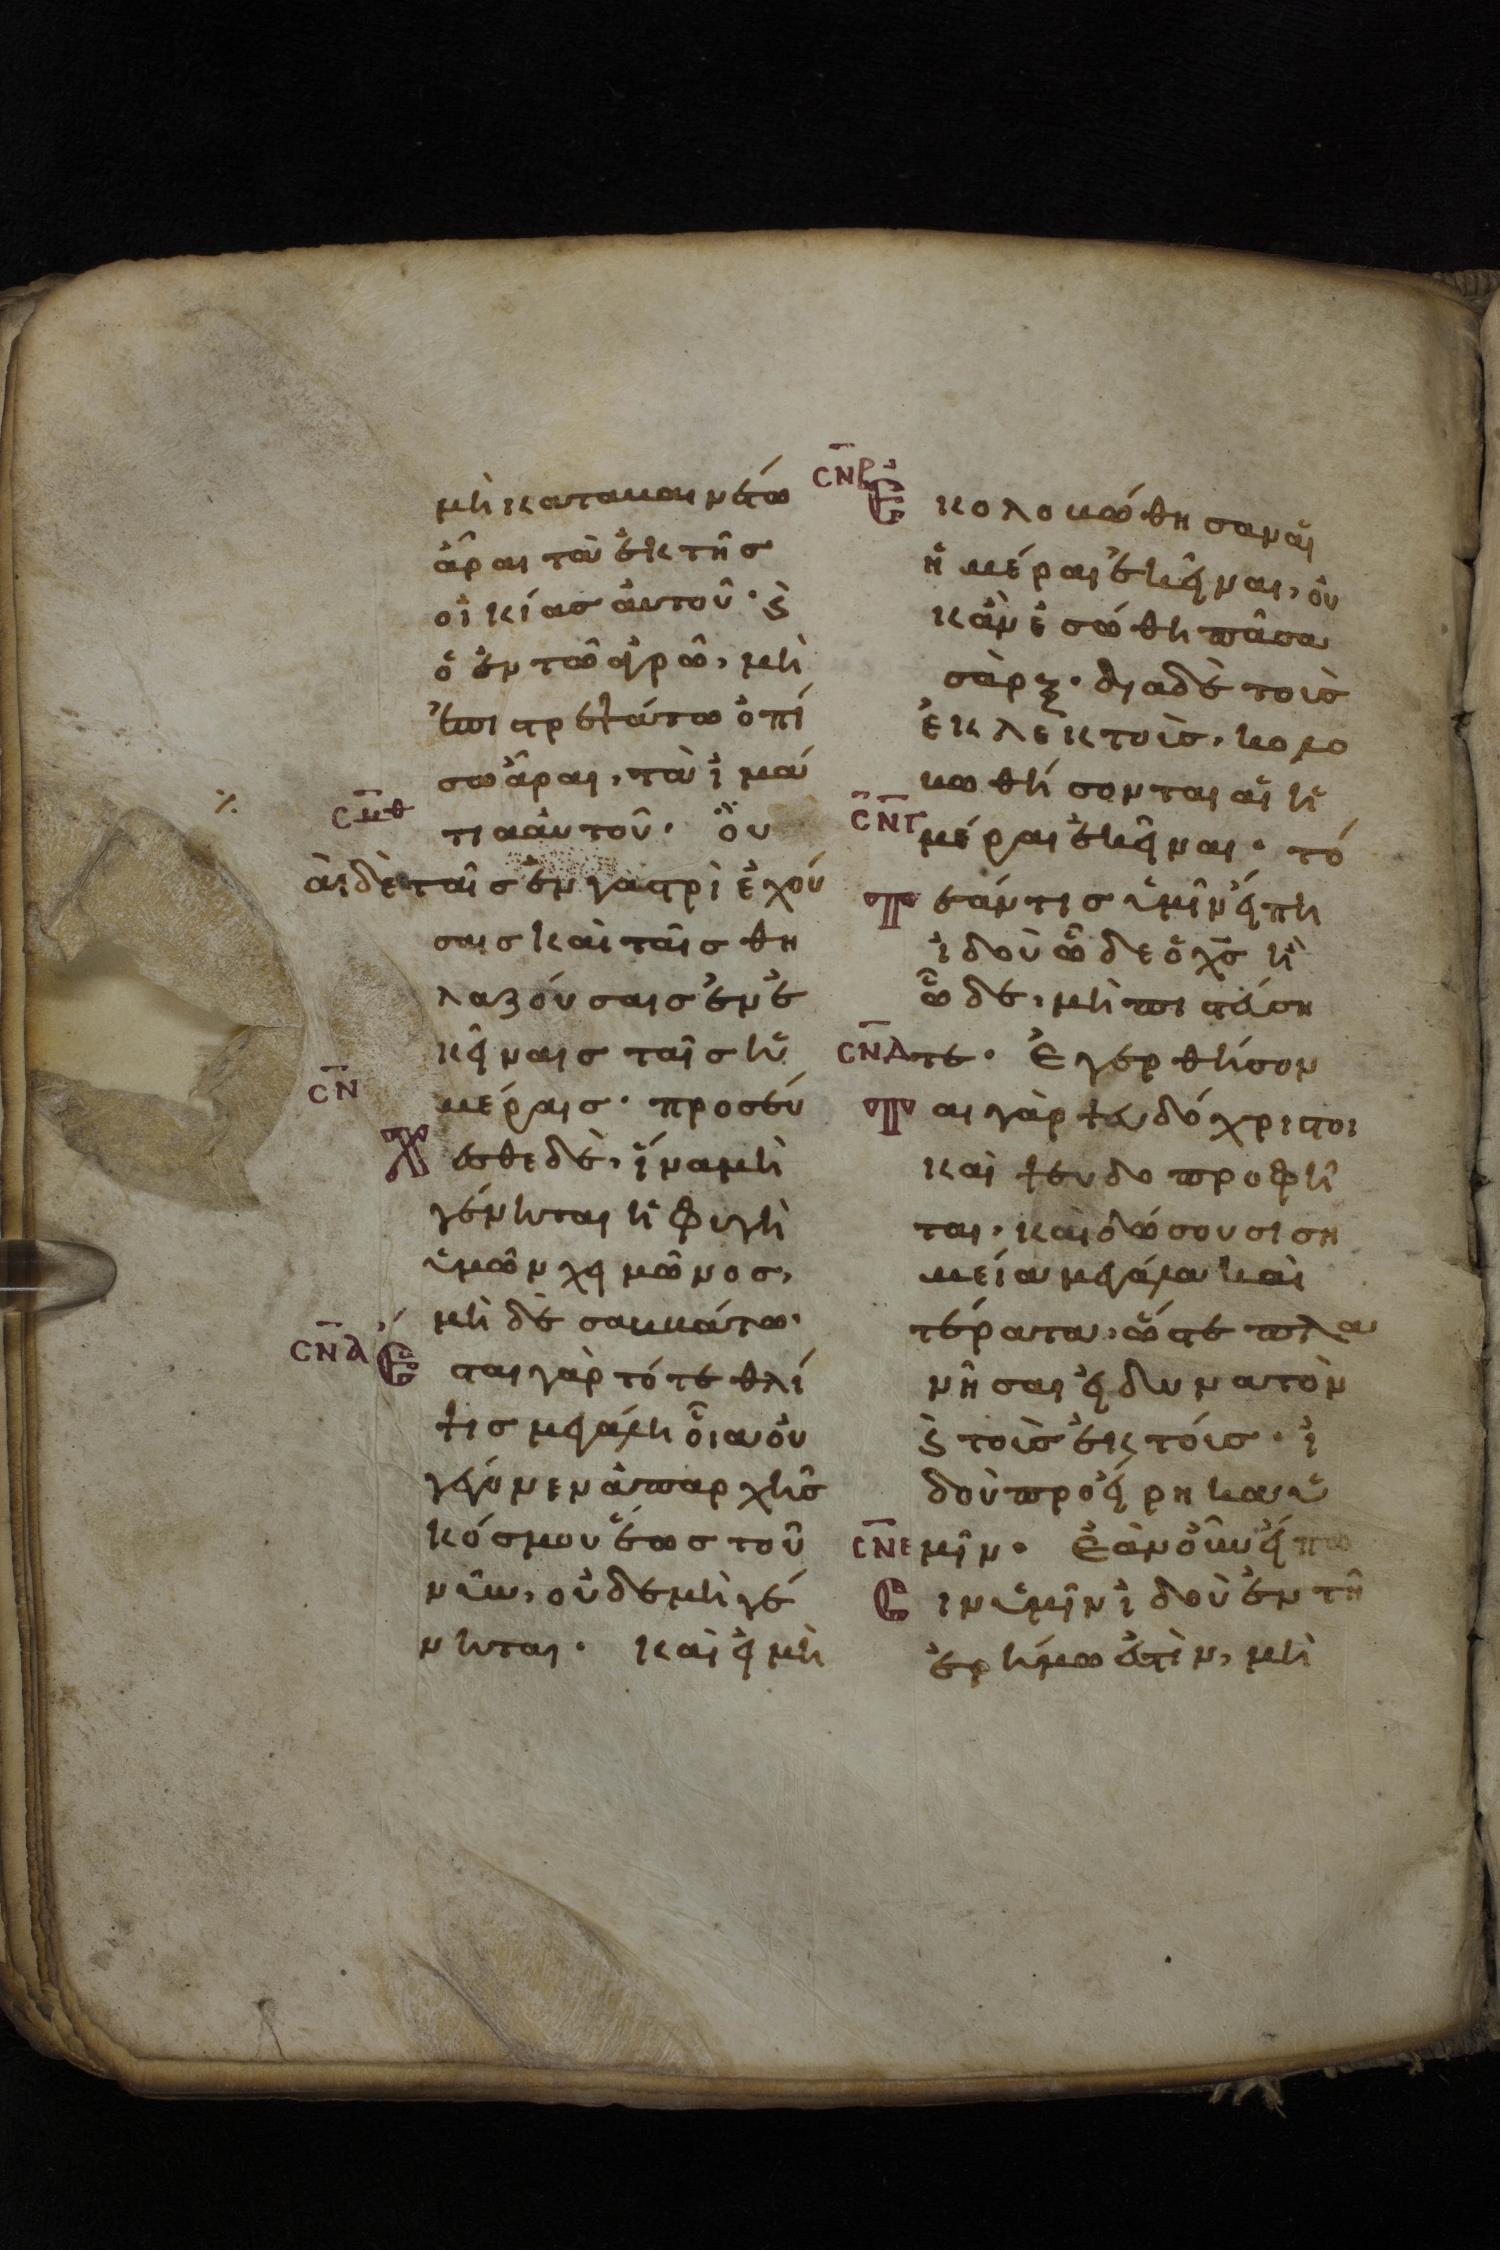 μὴ καταβαινέτω
ἆραι τὰ ἐκ τῆς
οἰκίας αὐτοῦ· ϗ
ὁ ἐν τῶ ἀγρῶ, μὴ
ἐπιστρεψάτω ὀπί
σω ἆραι, τὰ ἱμά
ϹΜΘ
τια αὐτοῦ· Οὐ
αὶ δὲ ταῖς ἐν γαστρὶ ἐχού
σαις καὶ ταῖς θη
λαζούσαις ἐν ἐ
κείναις ταῖς ἡ
ϹΝ
μέραις· προσεύ
Χεσθε δὲ, ἵνα μὴ
γένηται ἡ φυγὴ
ὑμῶν χειμῶνος,
μὴ δὲ σαββάτω·
ϹΝΑ
Ἔσται γὰρ τότε θλί
ψις μεγάλη οἵα οὐ
γέγονεν ἀπαρχῆς
κόσμου ἕως τοῦ
νῦν, οὐδε μὴ γέ
νηται· καὶ εἰ μὴ
ϹΝΒ
Ἐκολοβώθησαν αἱ
ἡμέραι ἐκεῖναι, οὐ
κἂν ἐσώθη πᾶσα
σὰρξ· διὰ δὲ τοὺς
ἐκλεκτοὺς, κολο
βωθήσονται αἱ ἡ
ϹΝΓ
μέραι ἐκεῖναι· τό
Τε ἐάν τις ὑμῖν εἴπη
ἰδοὺ ὧδε ὁ χς ἢ
ὧδε, μὴ πιστεύση
ϹΝΔ
τε· Ἐγερθήσον
Ται γὰρ ψευδόχριστοι
καὶ ψευδοπροφῆ
ται, καὶ δώσουσι ση
μεῖα μεγάλα καὶ
τέρατα, ὥστε πλα
νῆσαι εἰ δυνατὸν
ϗ τοὺς ἐκτούς· ἰ
δοὺ προείρηκα ὑ
ϹΝΕ
μῖν· Ἐὰν οὖν εἴπω
Ϲιν ὑμῖν ἰδοὺ ἐν τῆ
ἐρήμω ἐστὶν, μὴ